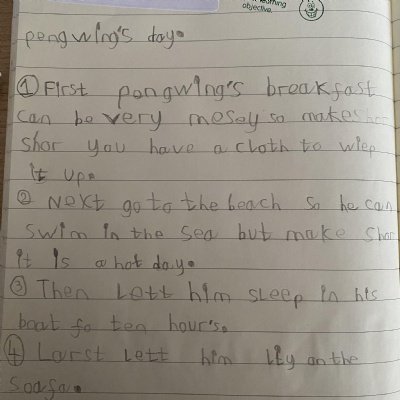 learning
objective.
pengwing's day.
① First pengwing's breakfast
can be very mesey so make
shor you have a cloth to wiep
it up.
② Next go to the beach so he can
swim in the sea but make shor
it is a hot day.
③ Then Lett him sleep in his
boat fo ten hour's.
④ Larst Lett him liy on the
soafa.